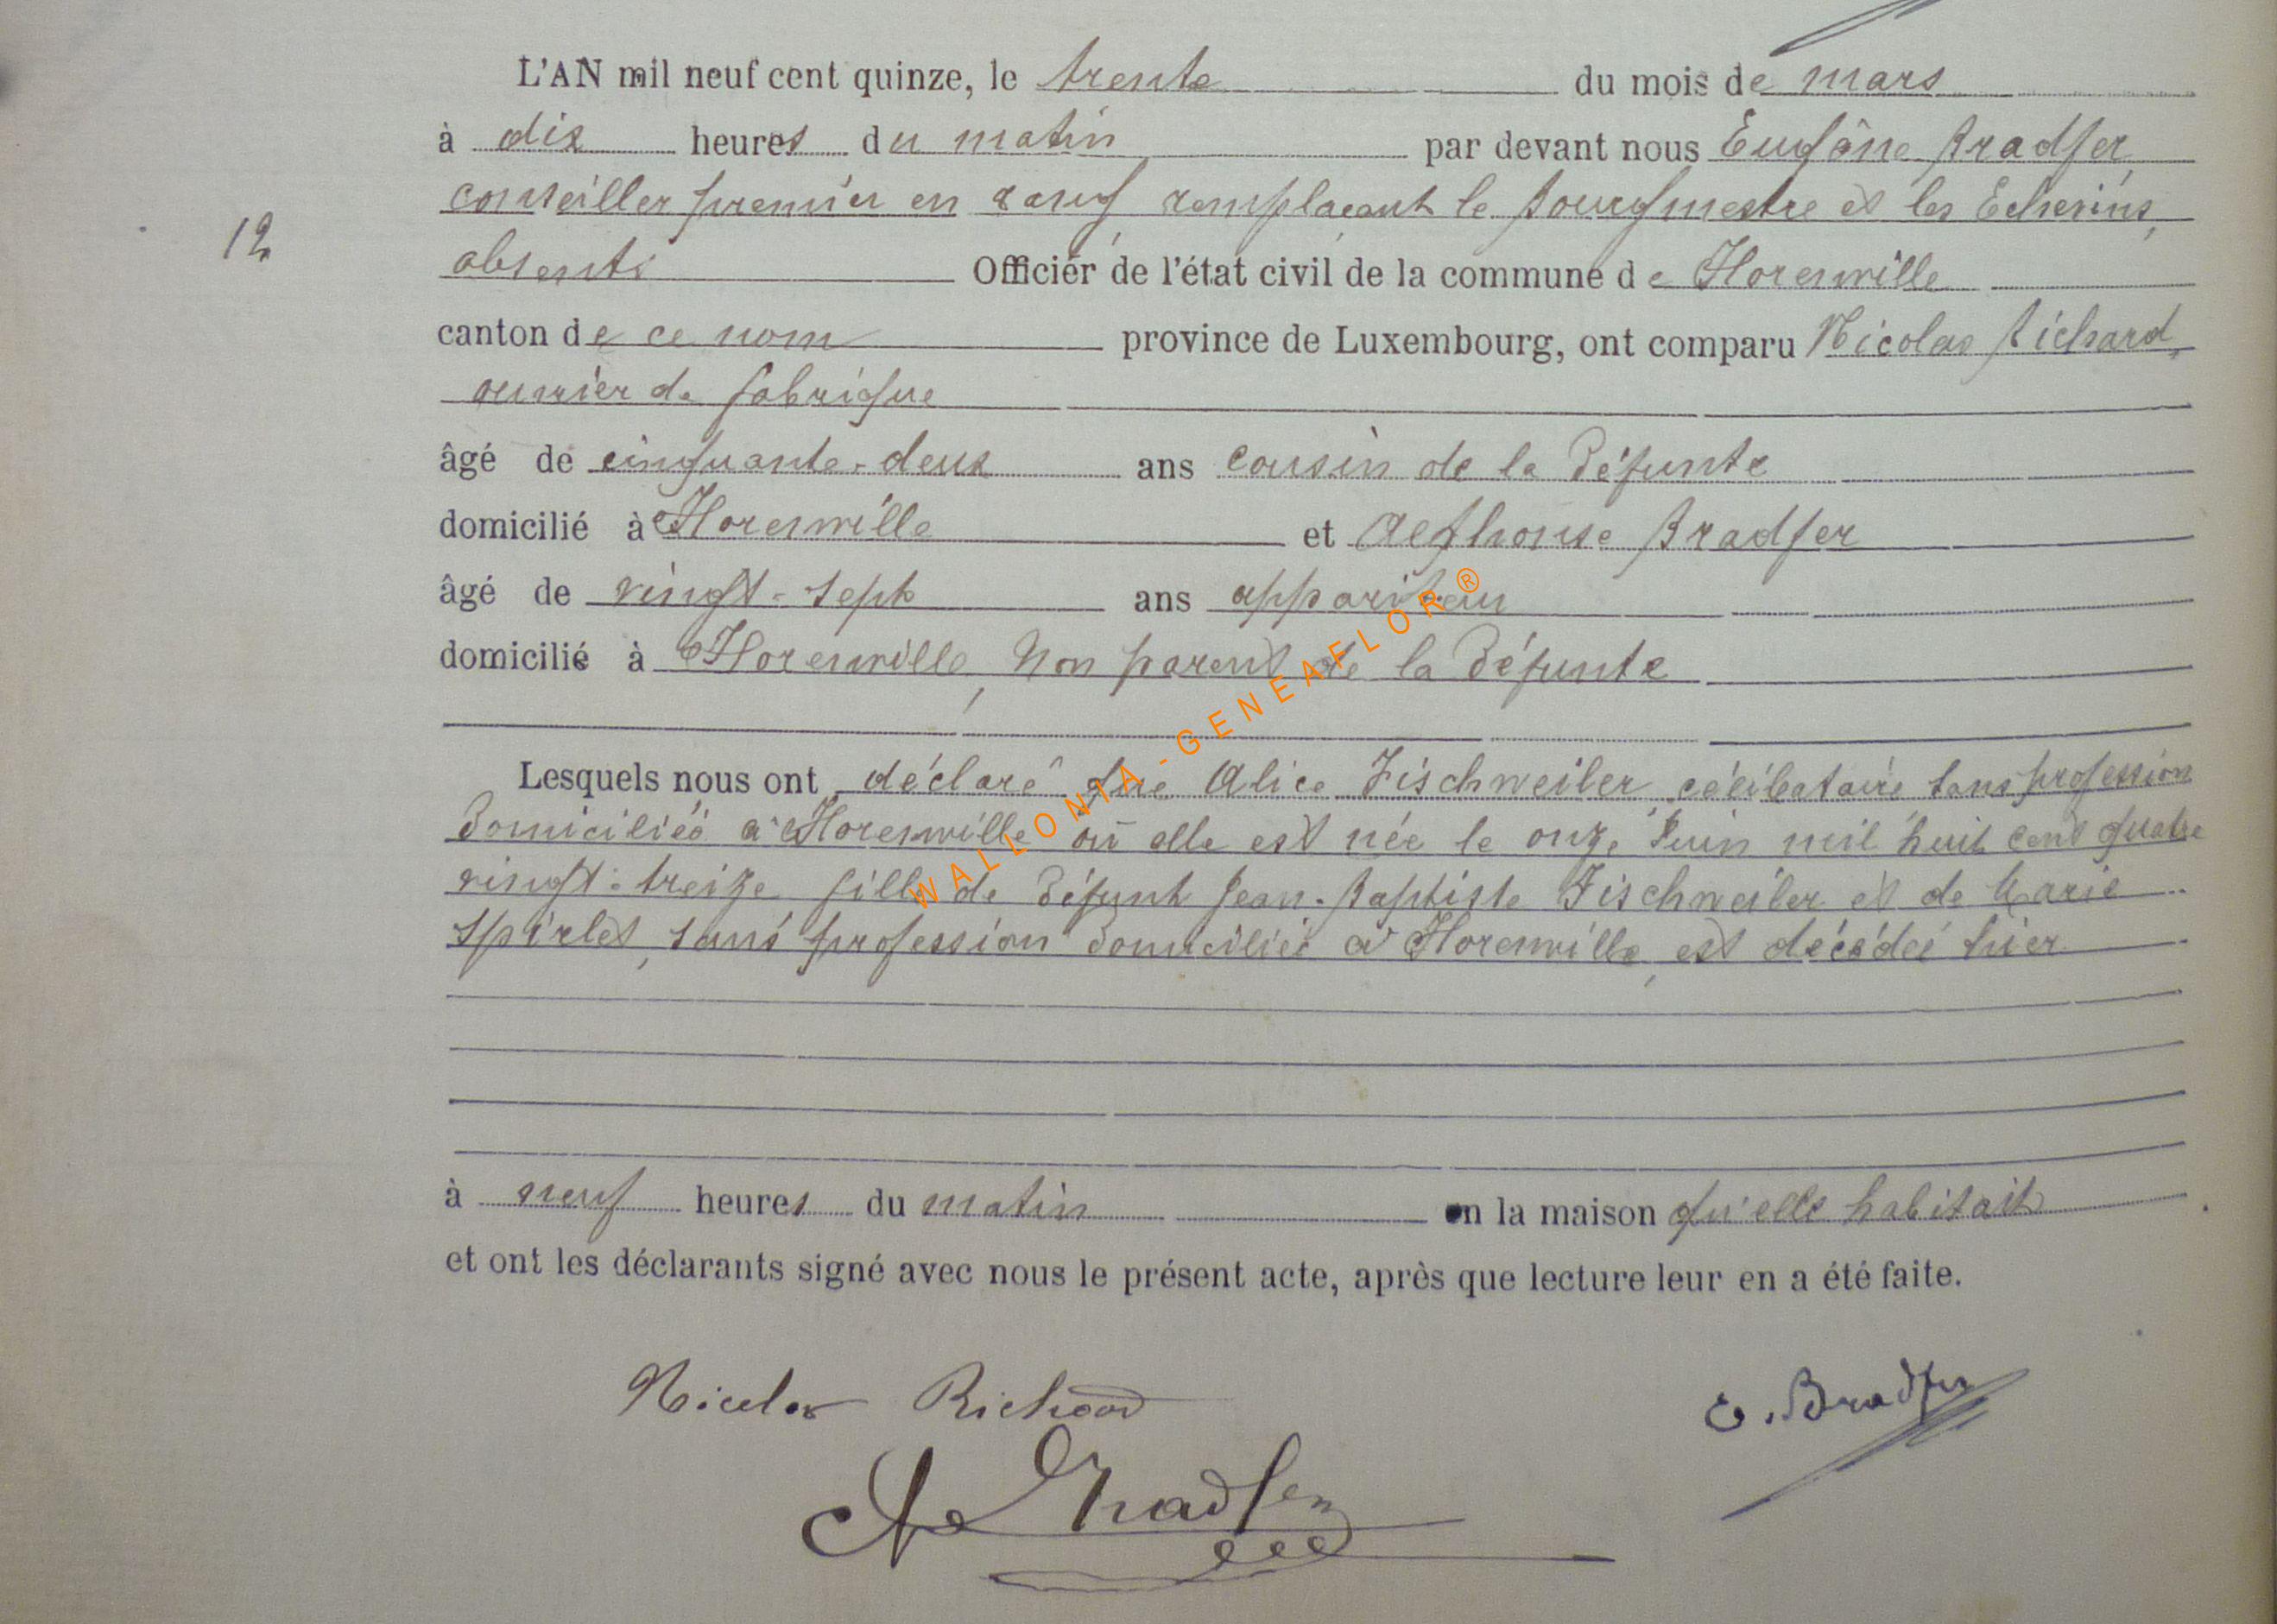 L'AN mil neuf cent quinze, le trente du mois de mars
à dix heures du matin par devant nous Eugène Bradfer,
conseiller premier en rang, remplaçant le Bourgmestre et les Echevins,
12
absents Officier de l'état civil de la commune de Florenville
canton de ce nom province de Luxembourg, ont comparu Nicolas Richard,
ouvrier de fabrique
âgé de cinquante-deux ans cousin de la défunte
domicilié à Florenville et Alphonse Bradfer
âgé de vingt-sept ans appariteur
domicilié à Florenville, non parent de la défunte
WALLONIA-GENEAFLOR®
Lesquels nous ont déclaré que Alice Fischweiler, célibataire sans profession
domiciliée à Florenville où elle est née le onze Juin mil huit cent quatre
vingt-treize fille de défunt Jean-Baptiste Fischweiler et de Marie
Spirlet, sans profession domiciliée à Florenville, est décédée hier
à neuf heures du matin en la maison qu'elle habitait
et ont les déclarants signé avec nous le présent acte, après que lecture leur en a été faite.
Nicolas Richard
E. Bradfer
A Bradfer